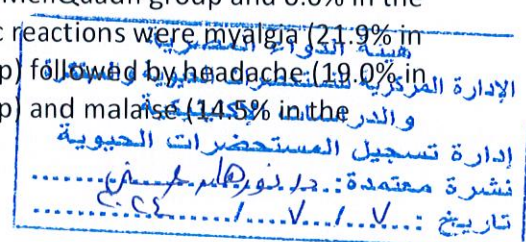 MenQuadfi group and 6.0% in the
c reactions were myalgia (21.9% in
p) followed by headache (19.0% in
p) and malaise (14.5% in the
هيئة الدواء المصرية
الإدارة المركزية للمستحضرات الحيوية
و الدر
إدارة تسجيل المستحضرات الحيوية
نشرة معتمدة: د/ نورهان
تاريخ: ٧ / ٧ / ٢٠٢٤